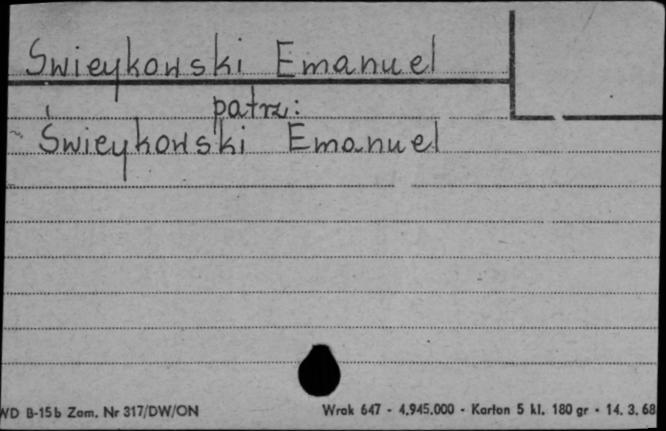 Swieykowski Emanuel
patrz:
Świeykowski Emanuel
WD B-15b Zam. Nr 317/DW/ON Wrak 647 - 4.945.000 - Karton 5 kl. 180 gr - 14. 3. 68